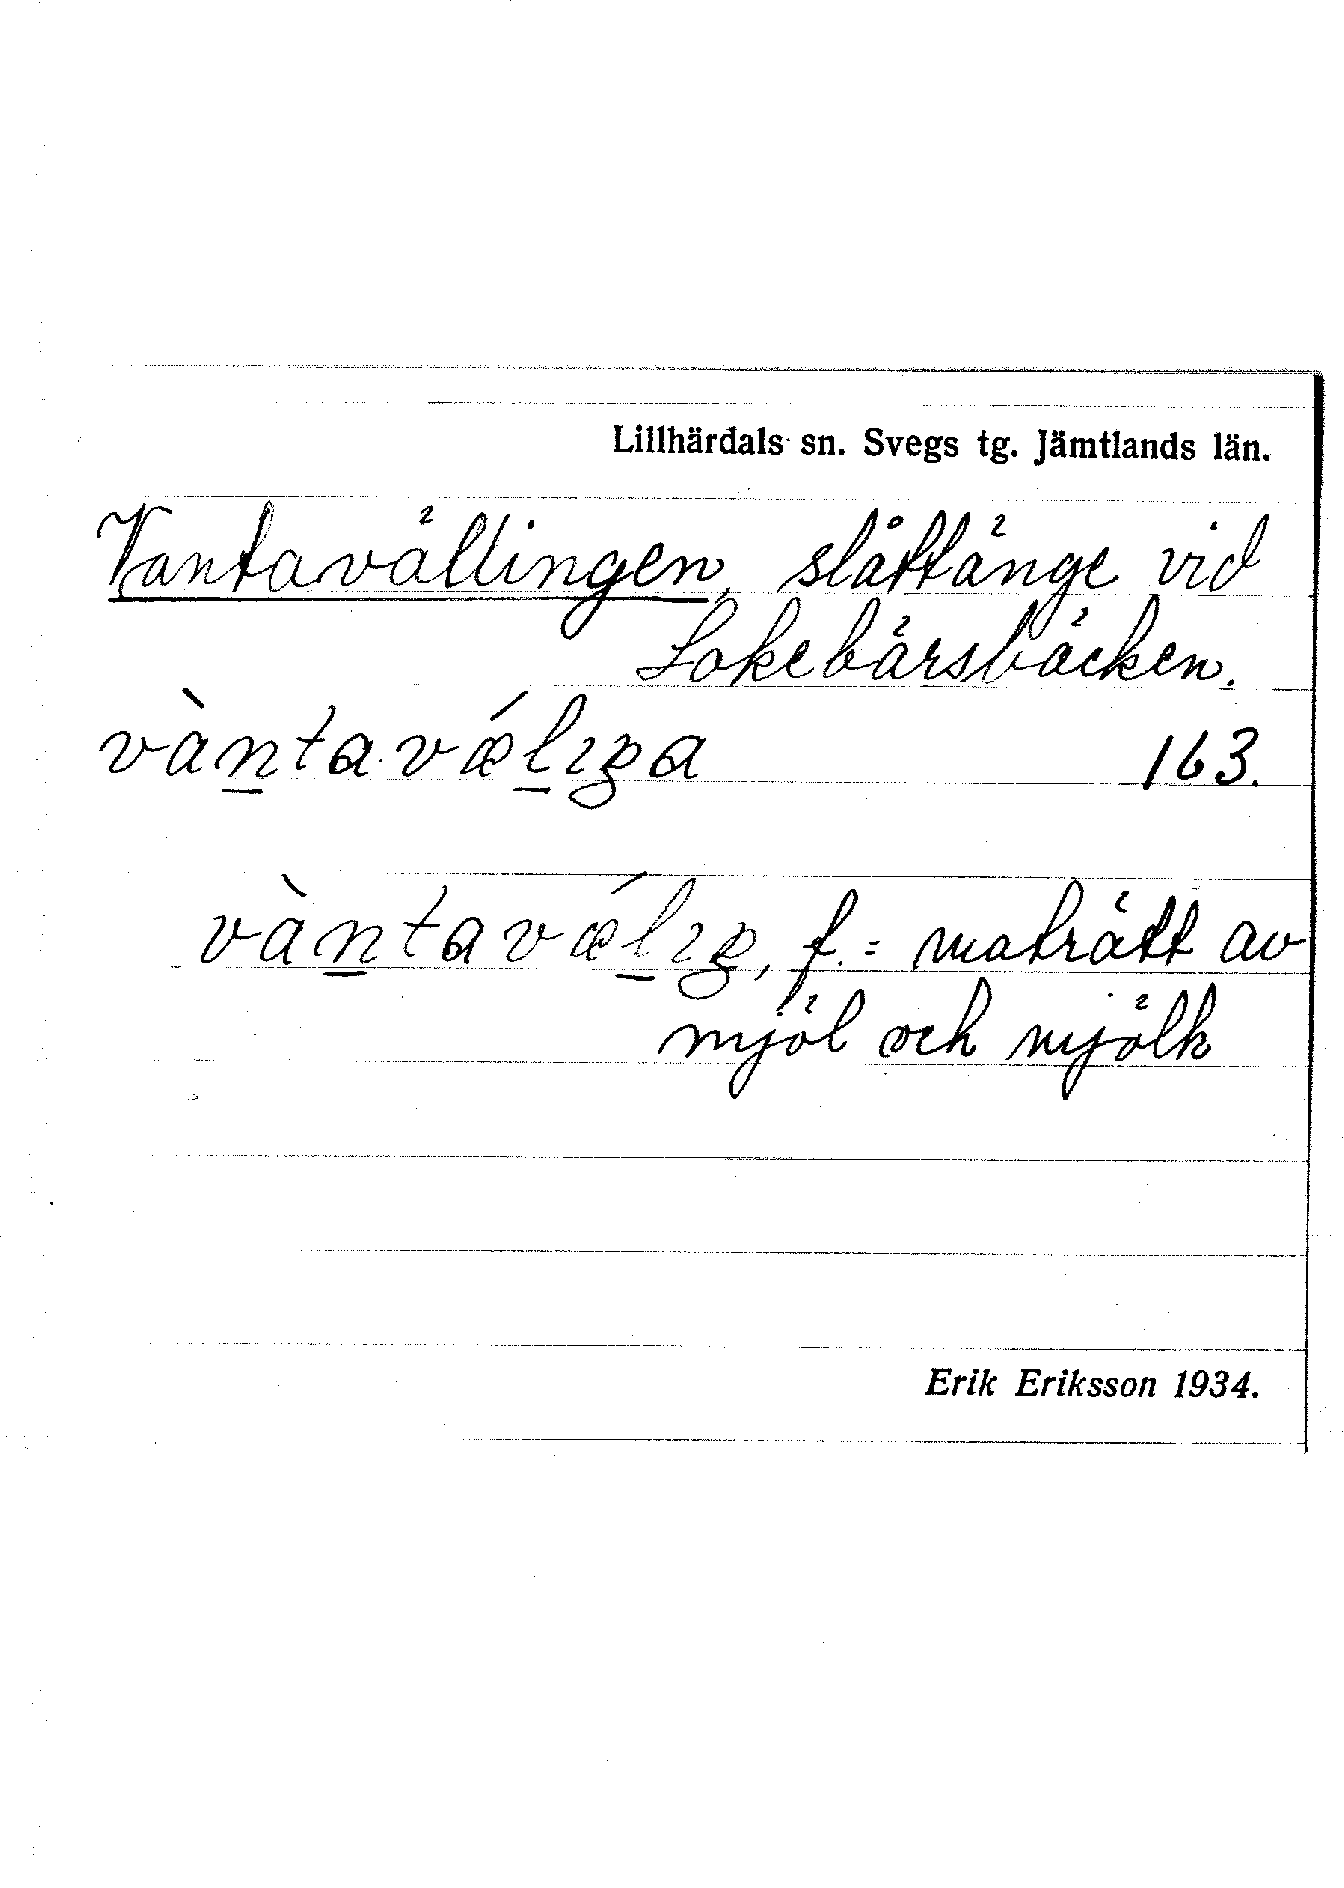 Lillhärdals sn. Svegs tg. Jämtlands län.
Vantavällingen, slåttänge vid
Lokebärsbäcken.
vàn̲tavǽl̲ıŋa 163.
vàn̲tavǽl̲ıŋ, f. = maträtt av
mjöl och mjölk
Erik Eriksson 1934.